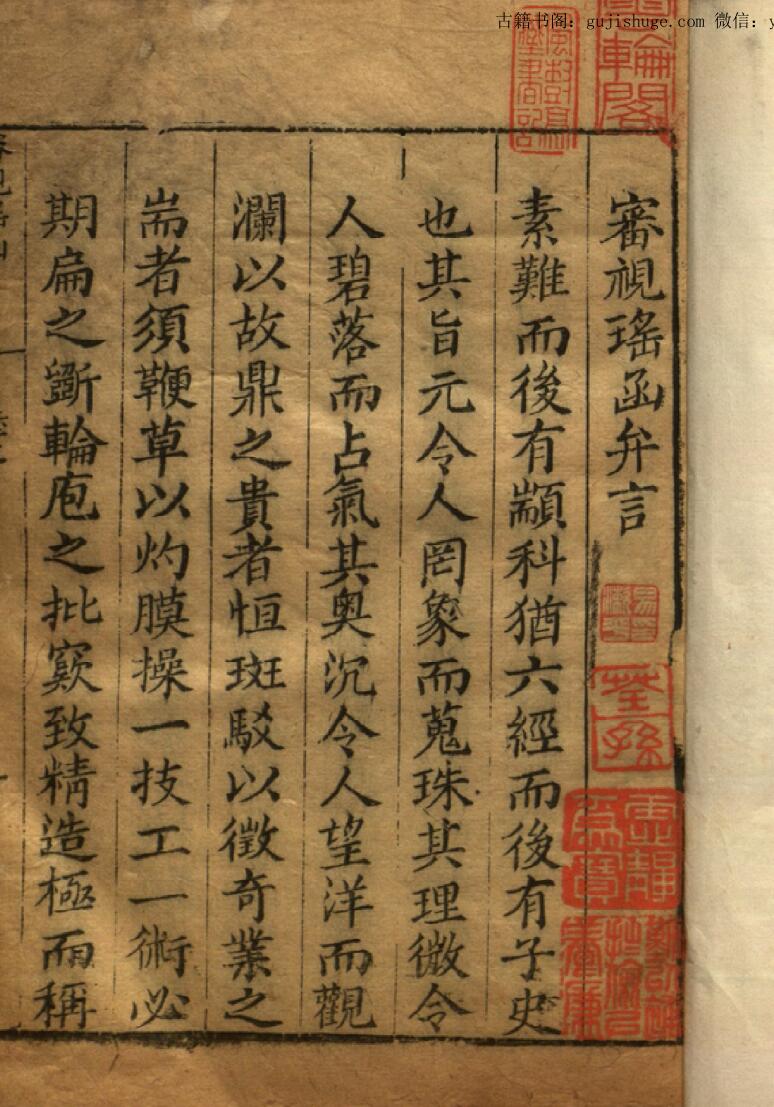 古籍书阁：gujishuge.com 微信：y
審視瑤函弁言
素難而後有顓科猶六經而後有子史
也其旨元令人罔象而蒐珠其理微令
人碧落而占氣其奧沉令人望洋而觀
瀾以故鼎之貴者恒斑駁以徵奇業之
耑者須鞭草以灼膜操一技工一術必
期扁之斵輪庖之批窾致精造極而稱
輪閣
虛靜為寶